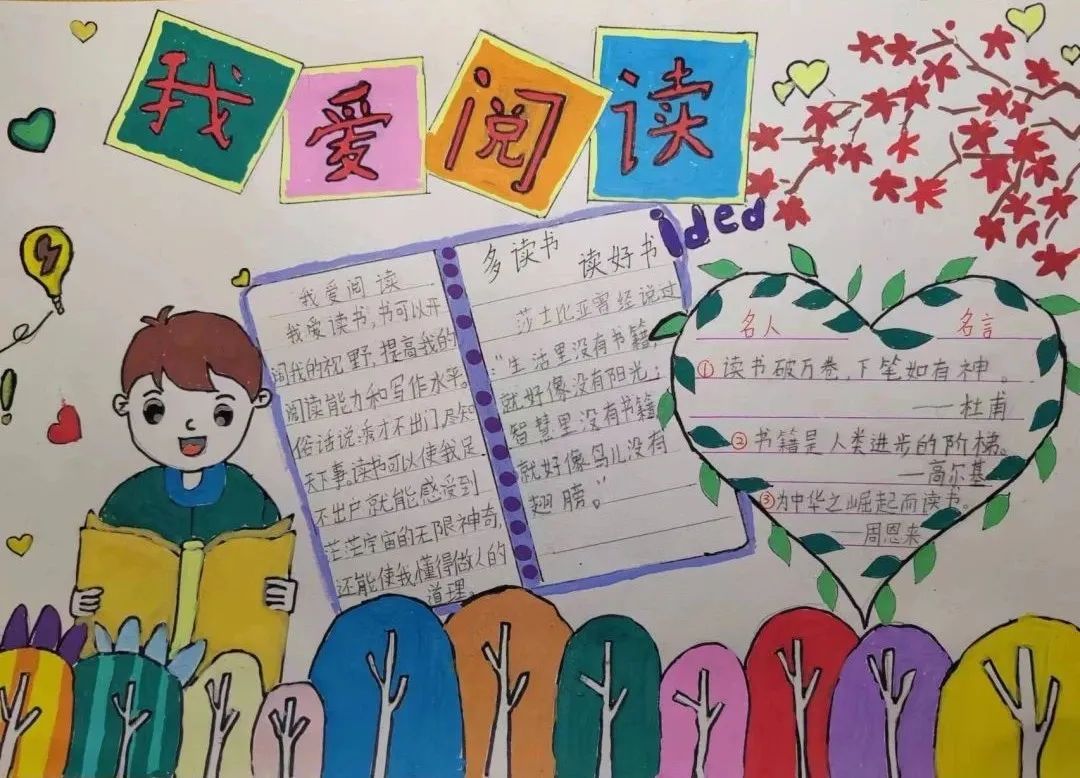 我爱阅读
ided
我爱阅读
我爱读书,书可以开
阔我的视野,提高我的
阅读能力和写作水平。
俗话说:秀才不出门,尽知
天下事。读书可以使我足
不出户就能感受到
茫茫宇宙的无限神奇,
还能使我懂得做人的
道理。
多读书 读好书
莎士比亚曾经说过
:"生活里没有书籍,
就好像没有阳光;
智慧里没有书籍,
就好像鸟儿没有
翅膀。"
名人 名言
①读书破万卷,下笔如有神。
——杜甫
②书籍是人类进步的阶梯。
—高尔基
③为中华之崛起而读书。
——周恩来